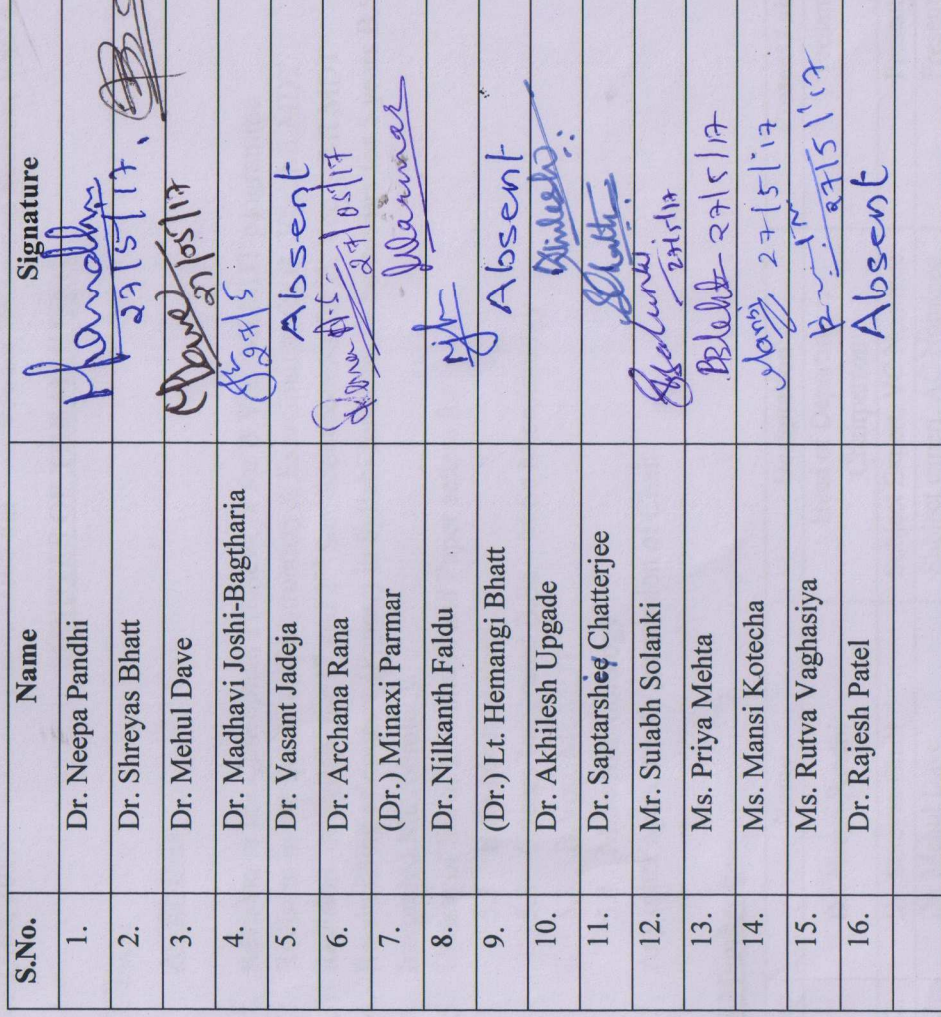 S.No. Name Signature
1. Dr. Neepa Pandhi 27/5/17
2. Dr. Shreyas Bhatt
3. Dr. Mehul Dave 27/05/17
4. Dr. Madhavi Joshi-Bagtharia 27/5
5. Dr. Vasant Jadeja Absent
6. Dr. Archana Rana 27/05/17
7. (Dr.) Minaxi Parmar
8. Dr. Nilkanth Faldu
9. (Dr.) Lt. Hemangi Bhatt Absent
10. Dr. Akhilesh Upgade
11. Dr. Saptarshee Chatterjee
12. Mr. Sulabh Solanki 27/5/17
13. Ms. Priya Mehta 27/5/17
14. Ms. Mansi Kotecha 27/5/17
15. Ms. Rutva Vaghasiya 27/5/17
16. Dr. Rajesh Patel Absent